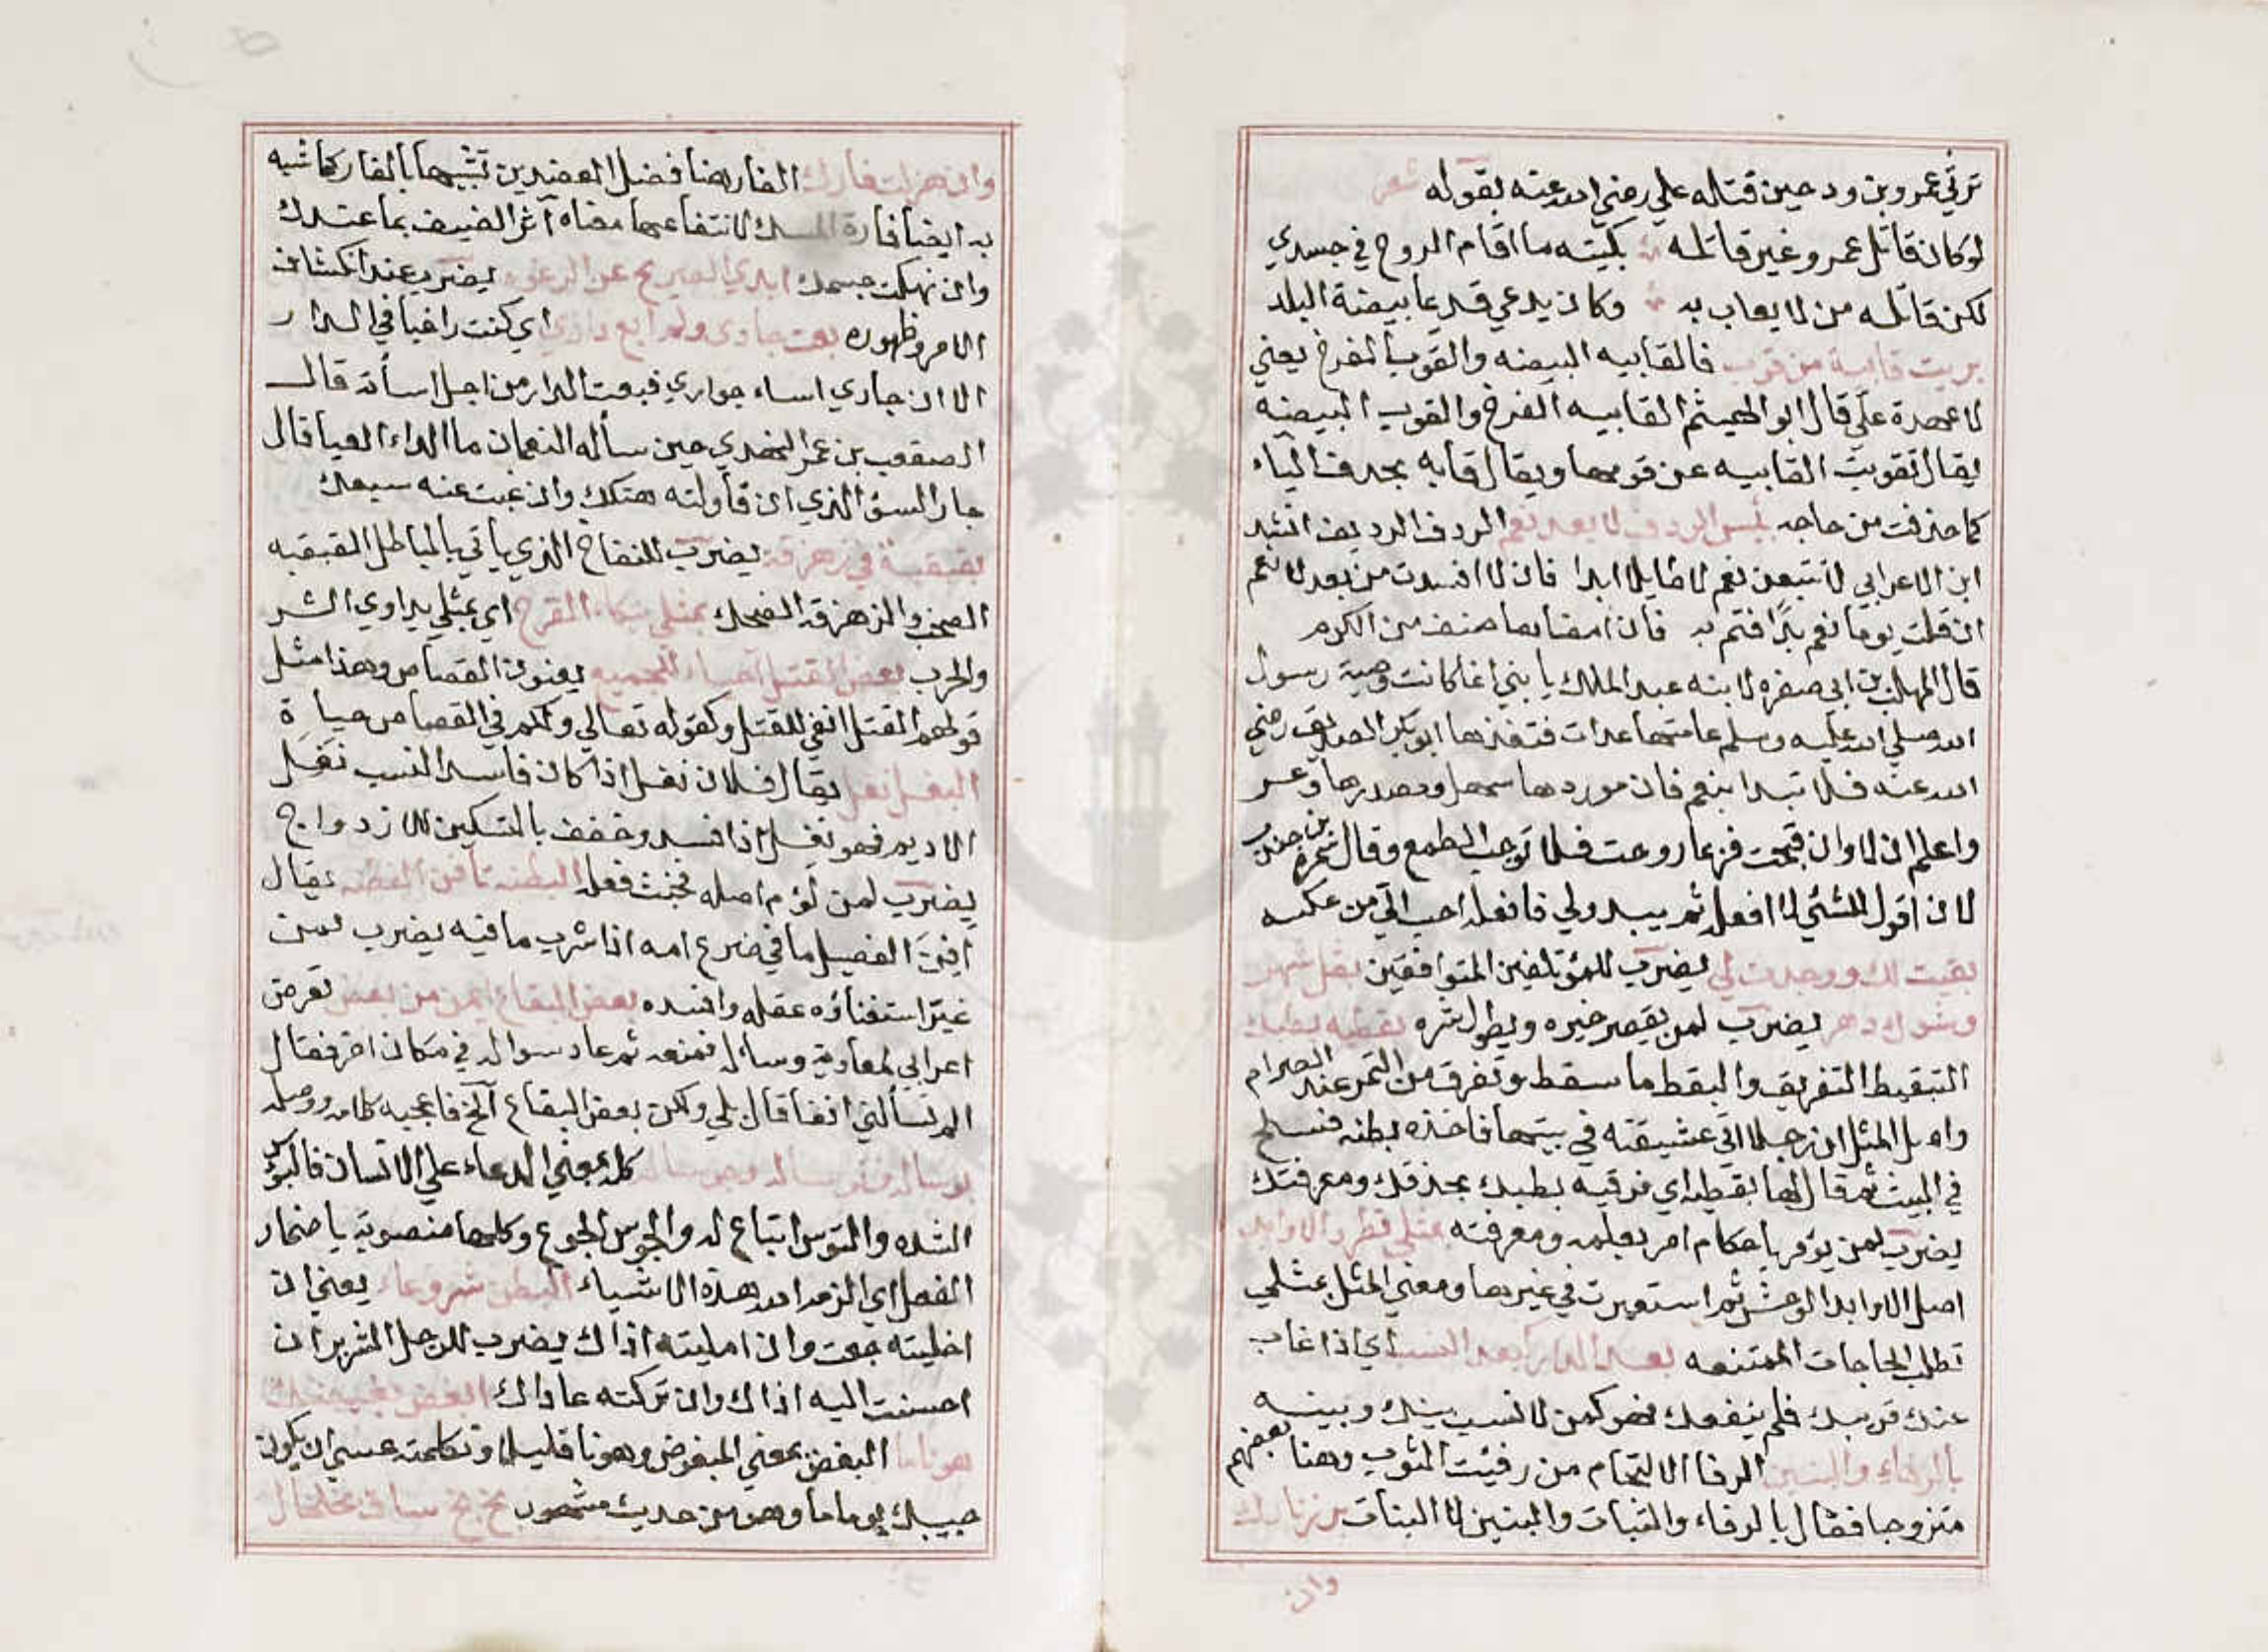 ترثي عمرو بن ود حين قتله علي رضي الله عنه بقوله شعر
لو كان قاتل عمرو غير قاتله بكيته ما اقام الروح في جسدي
لكن قاتله من لا يعاب به وكان يدعي قديما بيضة البلد
بريت قايبة من قوب فالقابيه البيضه والقوب الفرخ يعني
لا عهدة علي قال ابو الهيثم القابيه الفرخ والقوب البيضه
يقال تقوبت القابيه عن قوبها ويقال قابه بحذف الياء
كما حذفت من حاجه بئس الردف لا بعد نعم الردف الرديف انشد
ابن الاعرابي لا تتبعن نعم لا طايلا ابدا فان لا افسدت من بعد لا نعم
ان قلت يوما نعم بدًا فتم به فان امضاءها صنف من الكرم
قال المهلب بن ابي صفره لابنه عبد الملك يا بني انما كانت وصية رسول
الله صلي الله عليه وسلم عامتها عدات فتفذها ابو بكر الصديق رضي
الله عنه فلا تبدا بنعم فان موردها سهل ومصدرها وعر
واعلم ان لا وان قبحت فربما روحت فلا توجب الطمع وقال سمرة بن جندب
لان اقول للشئي لا افعل ثم يبدو لي فافعله احب الي من عكسه
بقيت لك ووجدت لي يضرب للمؤتلفين المتوافقين بقل شهر
وشوك دهر يضرب لمن يقصر خيره ويطول شره بقطيه بطبك
التبقيط التفريق والبقط ما سقط وتفرق من التمر عند الصرام
واصل المثل ان رجلا اتي عشيقته في بيتها فاخذه بطنه فسلح
في البيت ثم قال لها بقطيه اي فرقيه بطبك بحذقك ومعرفتك
يضرب لمن يؤمر باحكام امر بعلمه ومعرفته بمثلي تطرد الاوابد
اصل الاوابد الوحش ثم استعيرت في غيرها ومعني المثل بمثلي
تطلب الحاجات الممتنعه بعد الدار كبعد النسب اي اذا غاب
عنك قريبك فلم ينفعك فهو كمن لا نسب بينك وبينه
بالرفاء والبنين الرفا الالتحام من رفيت الثوب وهنا بعضهم
متزوجا فقال بالرفاء والثبات والبنين لا البنات برز نارك
وان
وان هزلت فارك الفار هنا فضل العضدين تشبيها بالفار كما شبه
به ايضا فارة المسك لانتفاعها معناه آثر الضيف بما عندك
وان نهكت جسمك ابدي الصريح عن الرغوه يضرب عند انكشاف
الامر وظهوره بعت جاري ولم ابع داري اي كنت راغبا في الدار
الا ان جاري اساء جواري فبعت الدار من اجل اساته قال
الصقعب بن عمر النهدي حين ساله النعمان ما الداء العيا قال
جار السؤ الذي ان قاولته هتك وان غبت عنه سبعك
بقبقة في زهزقة يضرب للنفاج الذي ياتي بالباطل البقبقه
الصخب والزهزقه الضحك بمثلي ينكاء القرح اي بمثلي يداوي الشر
والحرب بعض القتل احياء للجميع يعنون القصاص وهذا مثل
قولهم القتل انفي للقتل وكقوله تعالي ولكم في القصاص حياة
البغل نغل يقال فلان نغل اذا كان فاسد النسب نغل
الاديم فهو نغل اذا فسد وخفف بالتسكين للازدواج
يضرب لمن لؤم اصله فخبث فعله البطنه تافن الفطنه يقال
افن الفصيل ما في ضرع امه اذا شرب ما فيه يضرب لمن
غير استغناؤه عقله وافسده بعض البقاع ايمن من بعض تعرض
اعرابي لمعاوية وساله فمنعه ثم عاد سواله في مكان اخر فقال
الم تسالني انفا قال بلي ولكن بعض البقاع آلخ فاعجبه كلامه ووصله
بوسا له وتوسا له وجوسا له كله بمعني الدعاء علي الانسان فالبؤس
الشده والتوس اتباع له والجوس الجوع وكلها منصوبة باضمار
الفعل اي الزمه الله هذه الاشياء البطن شر وعاء يعني ان
اخليته جعت وان امليته اذاك يضرب للرجل الشرير ان
احسنت اليه اذاك وان تركته عاداك ابغض بغيضك
هونا ما البغض بمعني المبغوض وهونا قليلا وتكلمته عسي ان يكون
حبيبك يوما ما وهو من حديث مشهور بخ بخ ساق بخلخال